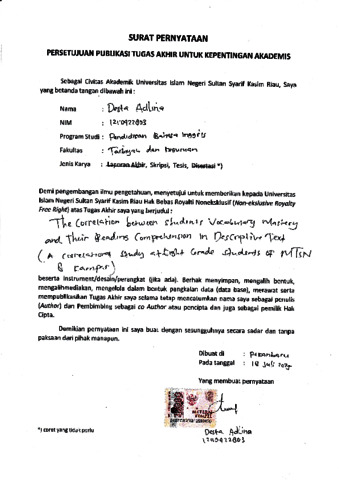 SURAT PERNYATAAN
PERSETUJUAN PUBLIKASI TUGAS AKHIR UNTUK KEPENTINGAN AKADEMIS
Sebagai Civitas Akademik Universitas Islam Negeri Sultan Syarif Kasim Riau, Saya
yang betanda tangan dibawah ini :
Nama : Desta Adlina
NIM : 12110422803
Program Studi : Pendidikan Bahasa Inggris
Fakultas : Tarbiyah dan Keguruan
Jenis Karya : Laporan Akhir, Skripsi, Tesis, Disetasi *)
Demi pengembangan ilmu pengetahuan, menyetujui untuk memberikan kepada Universitas
Islam Negeri Sultan Syarif Kasim Riau Hak Bebas Royalti Noneksklusif (Non-ekslusive Royalty
Free Right) atas Tugas Akhir saya yang berjudul :
The Correlation between students Vocabulary Mastery
and Their Reading Comprehension in Descriptive Text
(A correlational study at Eight Grade Students of MTSN
Kampar)
beserta instrument/desain/perangkat (jika ada). Berhak menyimpan, mengalih bentuk,
mengalihmediakan, mengelola dalam bentuk pangkalan data (data base), merawat serta
mempublikasikan Tugas Akhir saya selama tetap mencatumkan nama saya sebagai penulis
(Author) dan Pembimbing sebagai co Author atau pencipta dan juga sebagai pemilik Hak
Cipta.
Demikian pernyataan ini saya buat dengan sesungguhnya secara sadar dan tanpa
paksaan dari pihak manapun.
Dibuat di : Pekanbaru
Pada tanggal : 18 Juli
Yang membuat pernyataan
METERAI
TEMPEL
*) coret yang tidak perlu
Desta Adlina
12110422803